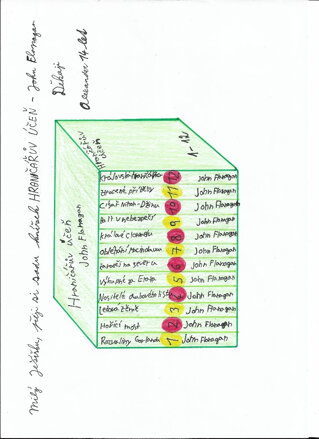 Milý Ježíšku, přeji si sadu knížek HRANIČÁŘŮV UČEŇ - John Flanagan
Děkuji
Alexander 14 let
Hraničářův
učeň
1-12
Hraničářův učeň
John Flanagan
Královský hraničář 12 John Flanagan
Ztracené příběhy 11 John Flanagan
Císař Nihon-Džinu 10 John Flanagan
Halt v nebezpečí 9 John Flanagan
Králové Clonmelu 8 John Flanagan
Obléhání Macindawu 7 John Flanagan
na severu 6 John Flanagan
Výkupné za Eraka 5 John Flanagan
Nositelé dubového listu 4 John Flanagan
Ledová země 3 John Flanagan
Hořící most 2 John Flanagan
Rozvaliny Gorlanu 1 John Flanagan